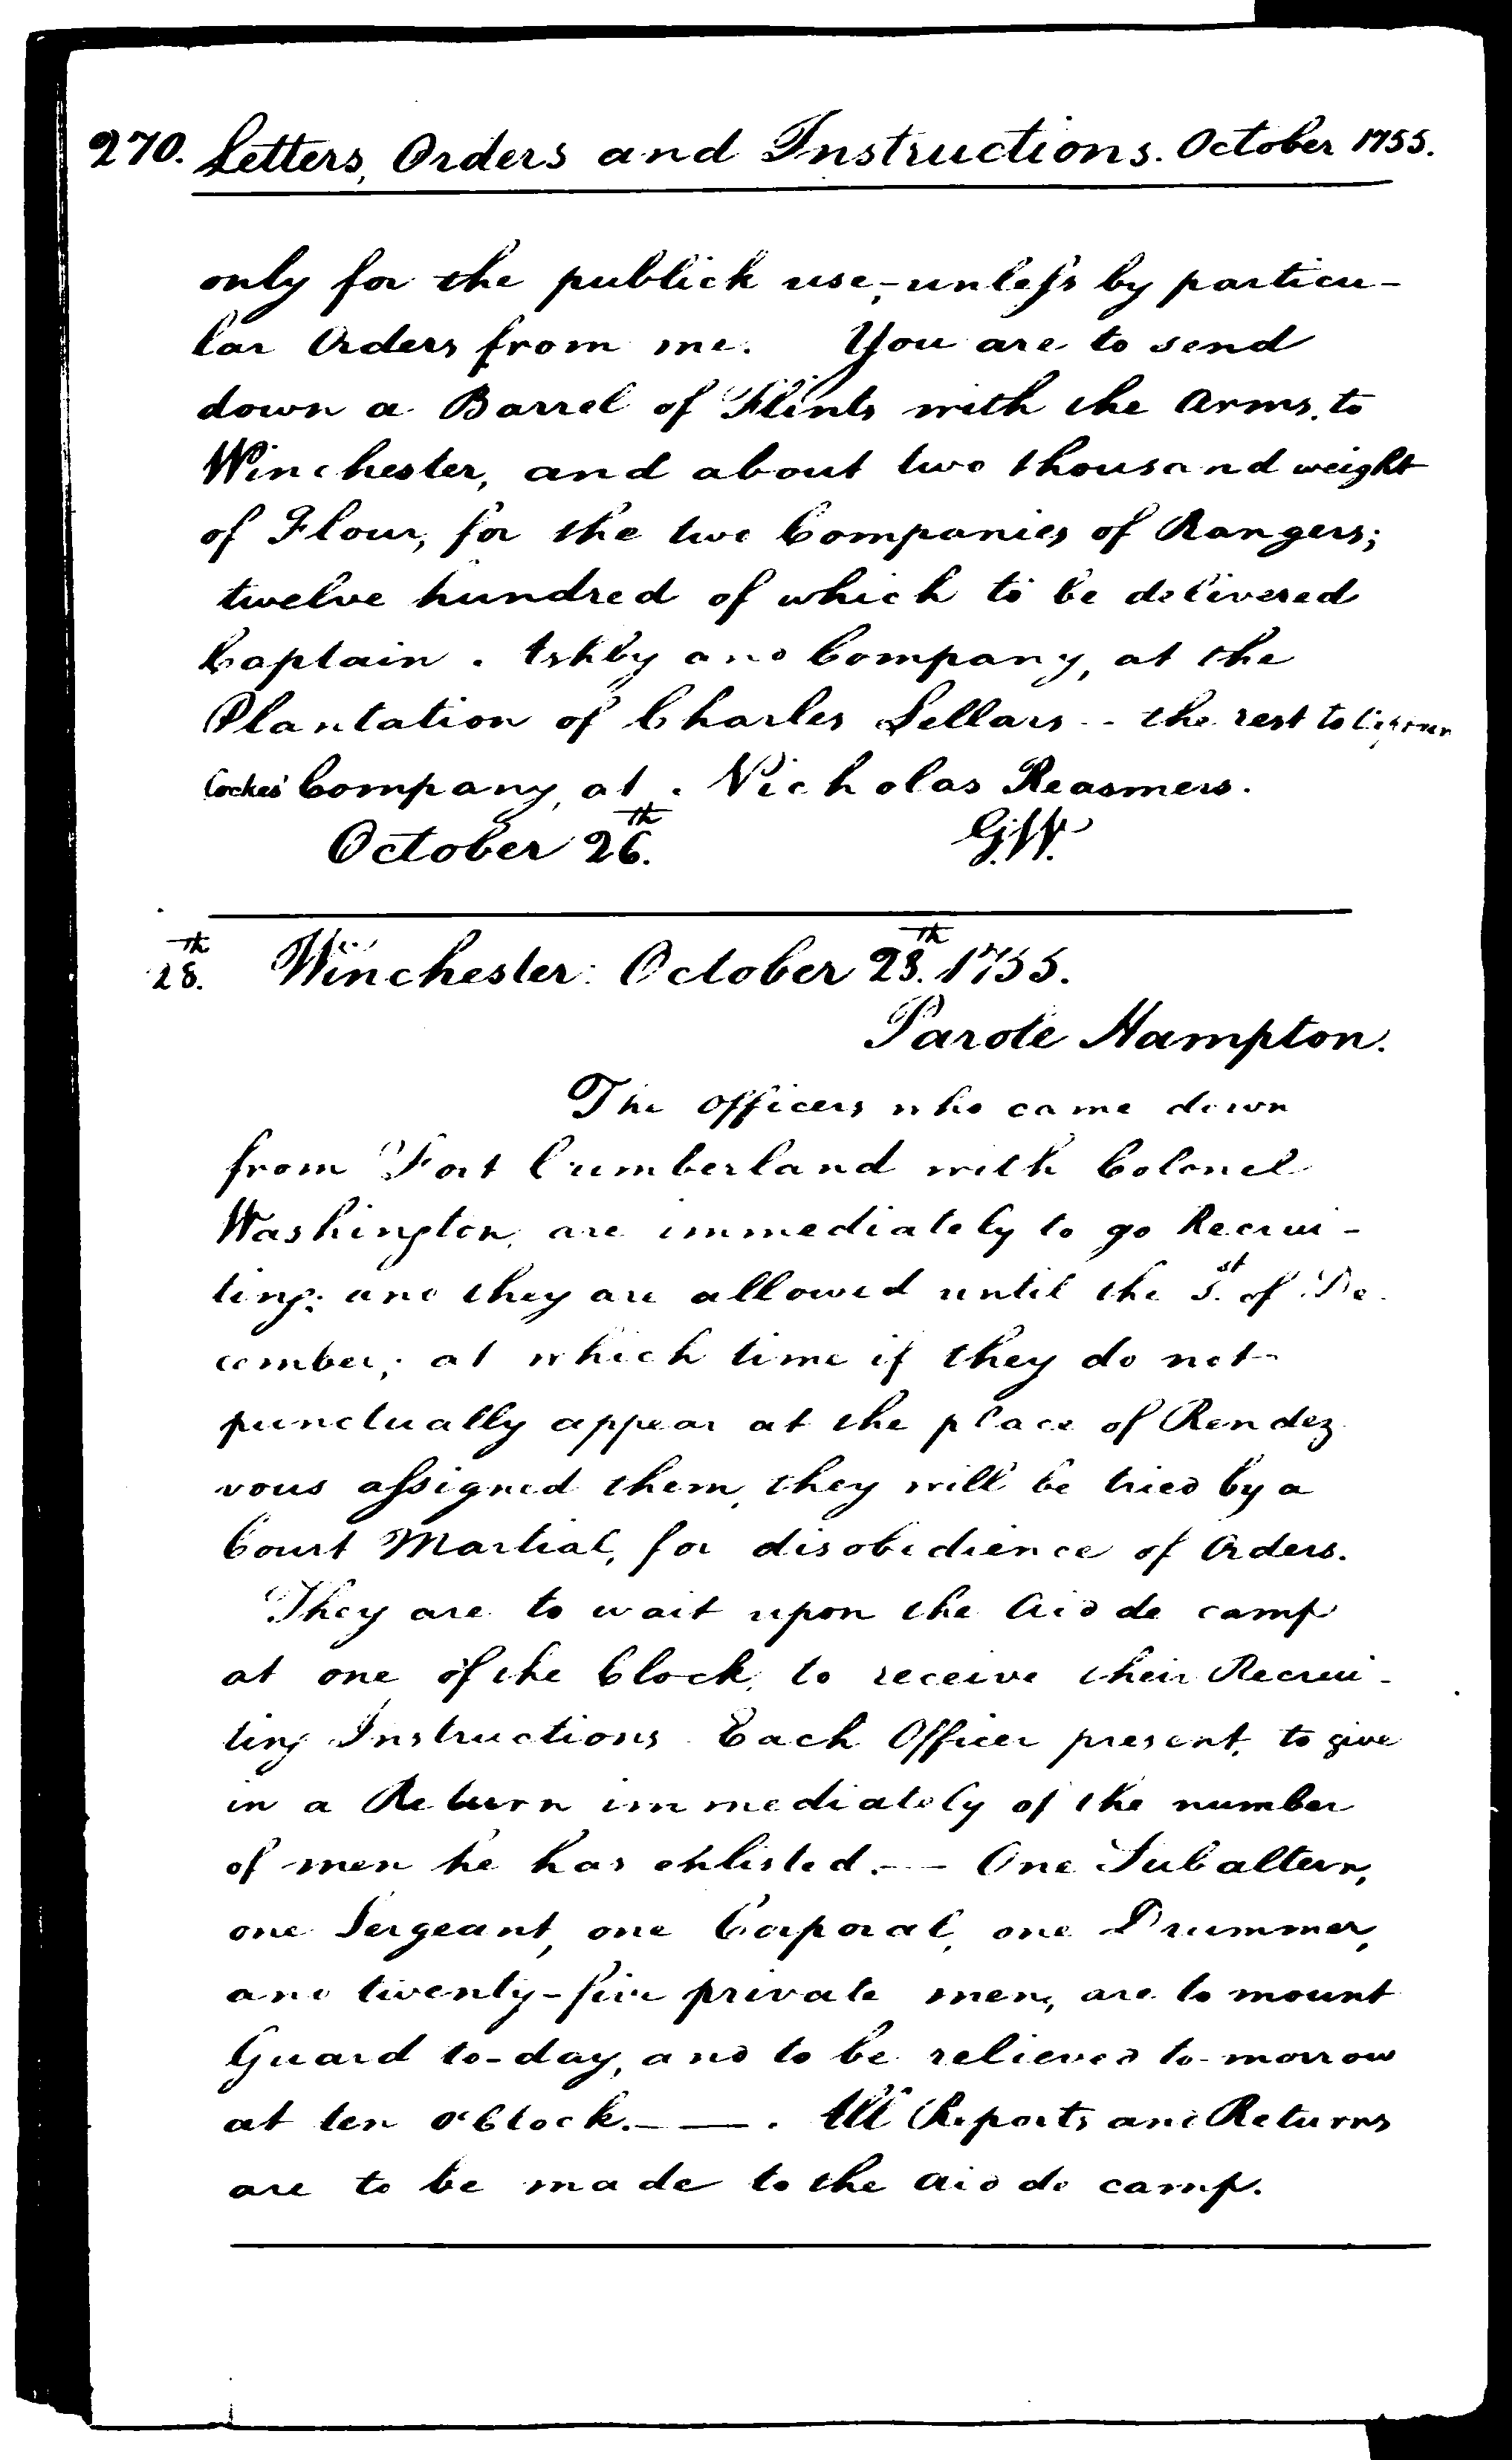 270. Letters, Orders and Instructions. October 1755.
only for the publick use,- unless by particu-
lar Orders from me. You are to send
down a Barrel of Flints with the Arms, to
Winchester, and about two thousand weight
of Flour, for the two Companies of Rangers;
twelve hundred of which to be delivered
Captain. Ashby and Company, at the
Plantation of Charles Sellars -- the rest to Captain
Cockes' Company, at. Nicholas Reasmers.
October 26th. G.W.
28th. Winchester: October 28th. 1755.
Parole Hampton.
The Officers who came down
from Fort Cumberland with Colonel
Washington, are immediately to go Recrui-
ting: and they are allowed until the 1st. of De-
cember; at which time if they do not
punctually appear at the place of Rendez
vous assigned them, they will be tried by a
Court Martial, for disobedience of Orders.
They are to wait upon the Aid de camp
at one of the Clock, to receive their Recrui-
ting Instructions. Each Officer present, to give
in a Return immediately of the number
of men he has enlisted.-- One Subaltern,
one Sergeant, one Corporal, one Drummer,
and twenty-five private men, are to mount
Guard to-day, and to be relieved to-morrow
at ten o'Clock.- —. All Reports and Returns
are to be made to the Aid de camp.